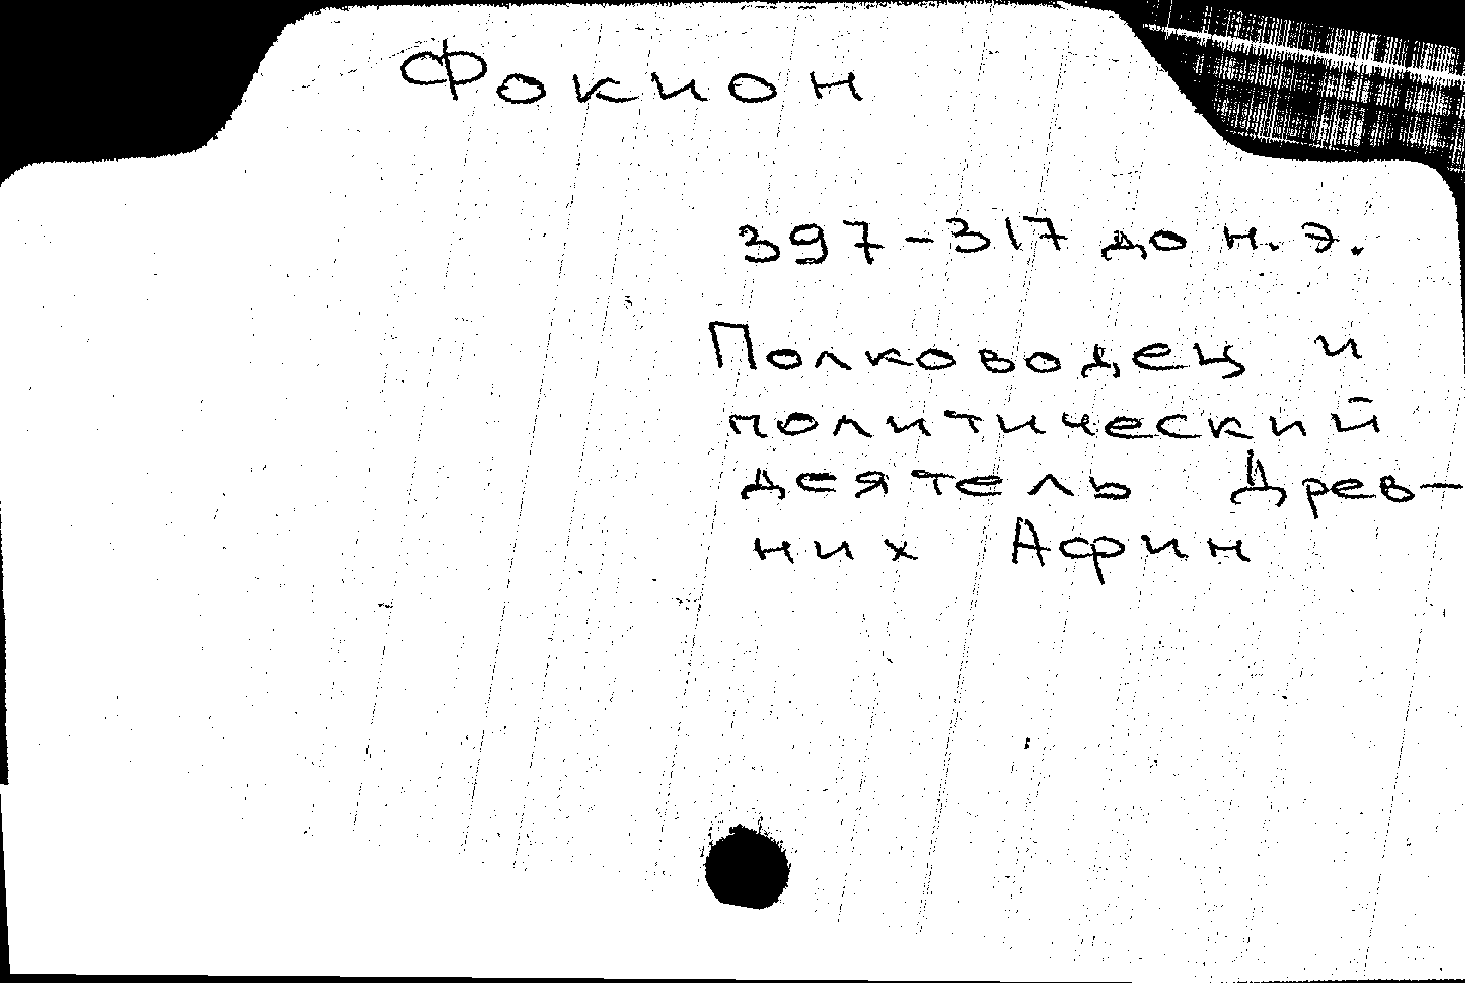 Фокион
397-317 до н. э.
Полководец и
политический
деятель Древ-
них Афин